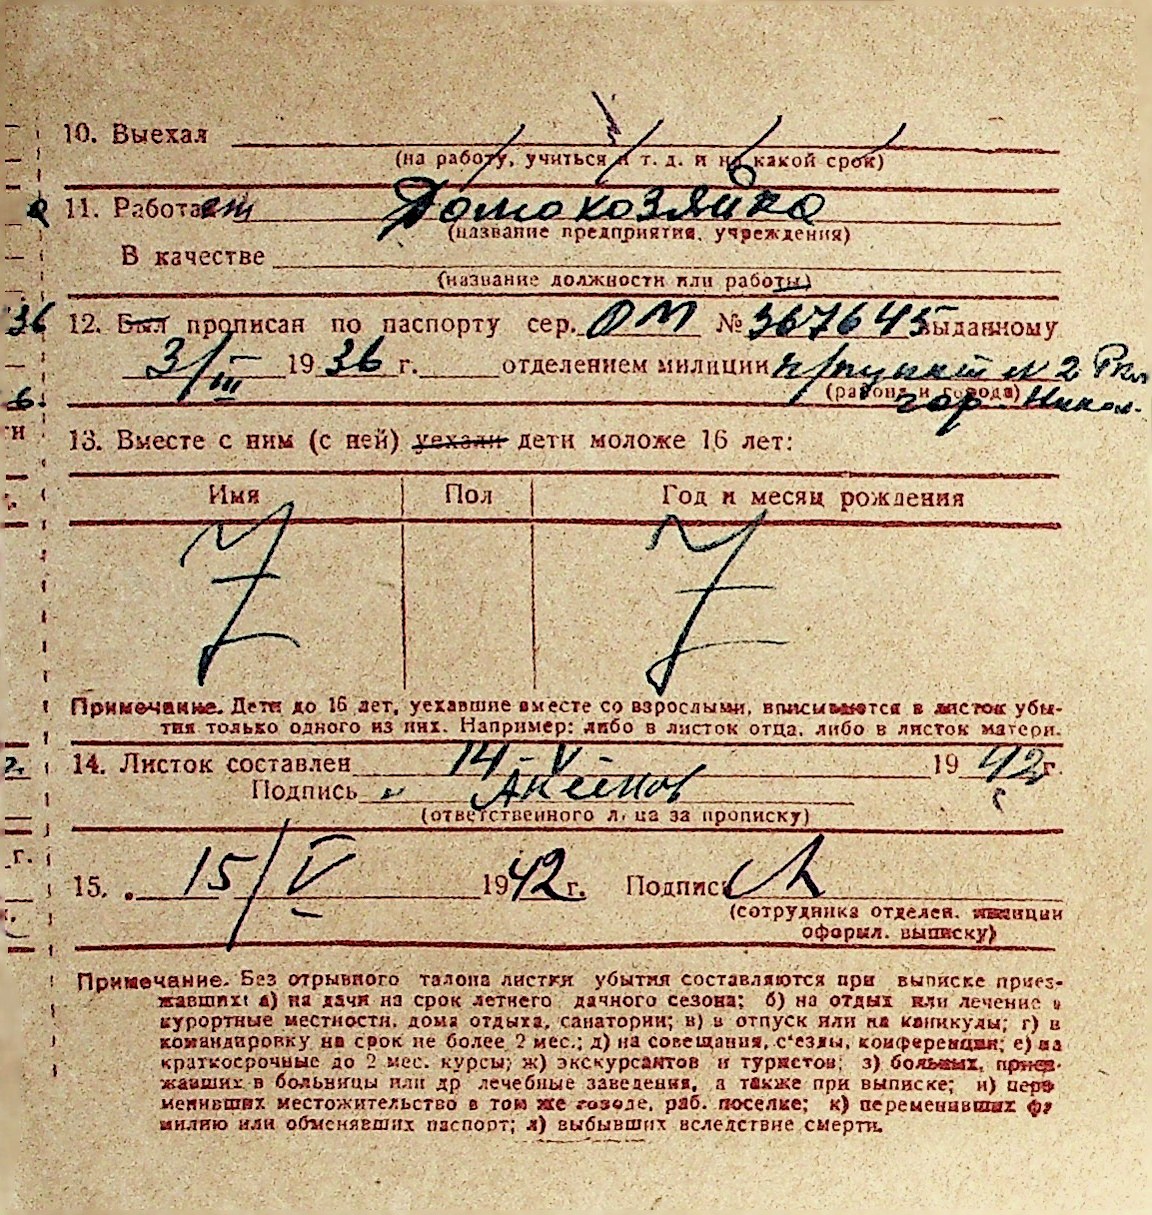 10. Выехал
(на работу, учиться и т. д. и на какой срок)
11. Работает Домохозяйка
(название предприятия, учреждения)
В качестве
(название должности или работы)
12. Был прописан по паспорту сер. ОМ № 367645 выданному
3/III 1936 г. отделением милиции п/пункт № 2
(района и города) гор.
13. Вместе с ним (с ней) уехали дети моложе 16 лет:
Имя Пол Год и месяц рождения
Примечание. Дети до 16 лет, уехавшие вместе со взрослыми, вписываются в листок убы-
тия только одного из них. Например: либо в листок отца, либо в листок матери.
14. Листок составлен 14 V 1942 г.
Подпись Аксенов
(ответственного лица за прописку)
15. 15/V 1942 г. Подпись
(сотрудника отделен. милиции
оформл. выписку)
Примечание. Без отрывного талона листки убытия составляются при выписке приез-
жавших: а) на дачи на срок летнего дачного сезона; б) на отдых или лечение в
курортные местности, дома отдыха, санатории; в) в отпуск или на каникулы; г) в
командировку на срок не более 2 мес.; д) на совещания, с'езды, конференции; е) на
краткосрочные до 2 мес. курсы; ж) экскурсантов и туристов; з) больных, приез-
жавших в больницы или др лечебные заведения, а также при выписке; и) пере
менивших местожительство в том же городе, раб. поселке; к) переменивших фа
милию или обменявших паспорт; л) выбывших вследствие смерти.